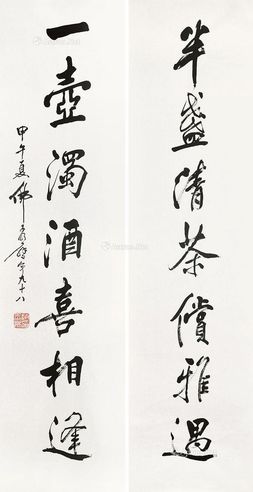 半盏清茶偿雅遇
一壶浊酒喜相逢
甲午夏佛 年九十八